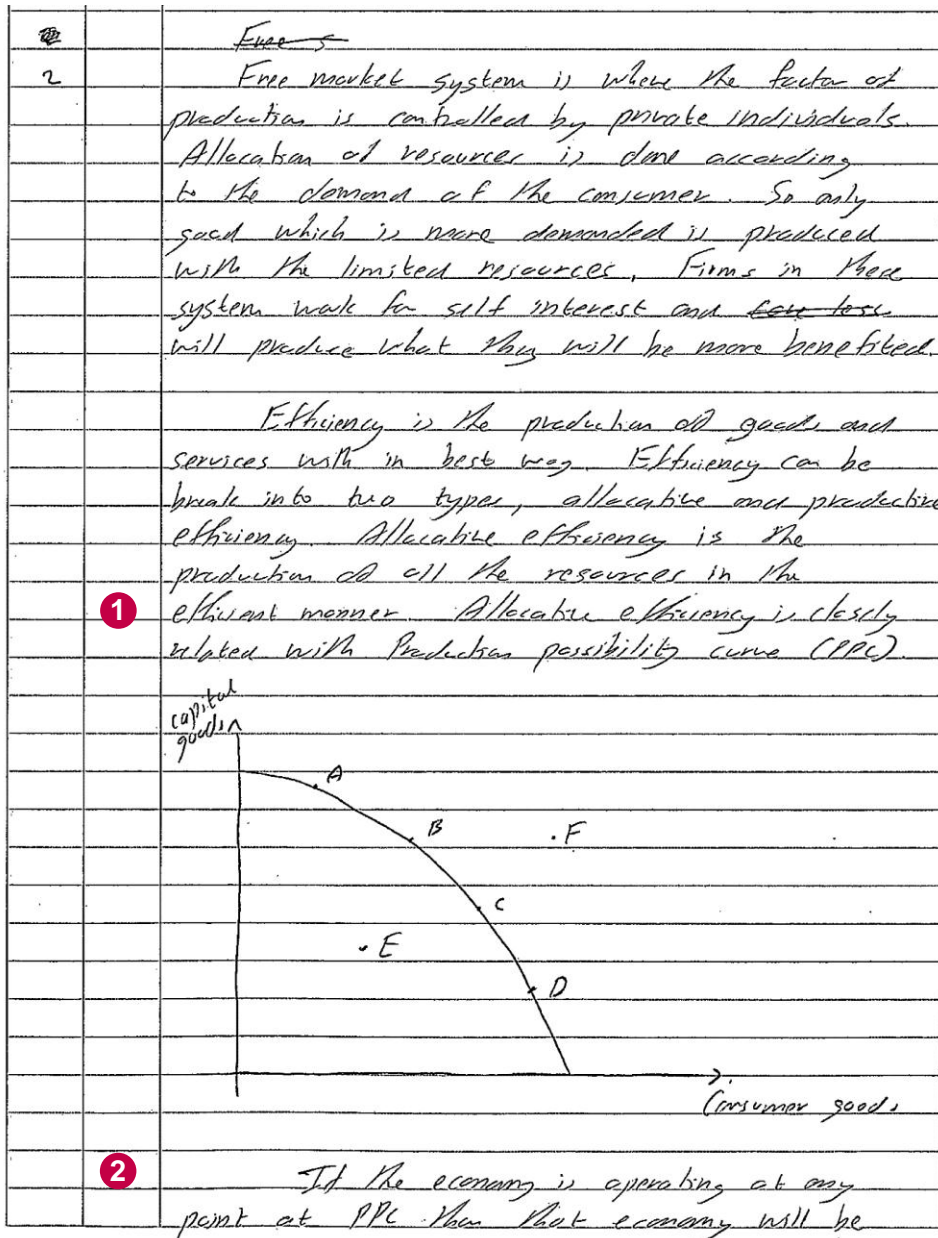 Free s
2 Free market system is where the factor of
production is controlled by private individuals.
Allocation of resources is done according
to the demand of the consumer. So only
good which is more demanded is produced
with the limited resources, Firms in these
system work for self interest and
will produce what they will be more benefited.
Efficiency is the production of goods and
services with in best way. Efficiency can be
break into two types, allocative and productive
efficiency. Allocative efficiency is the
production of all the resources in the
1 efficient manner. Allocative efficiency is closely
related with Production possibility curve (PPC).
capital
goods
A
B
.F
C
.E
D
Consumer goods
2 If the economy is operating at any
point at PPC than that economy will be